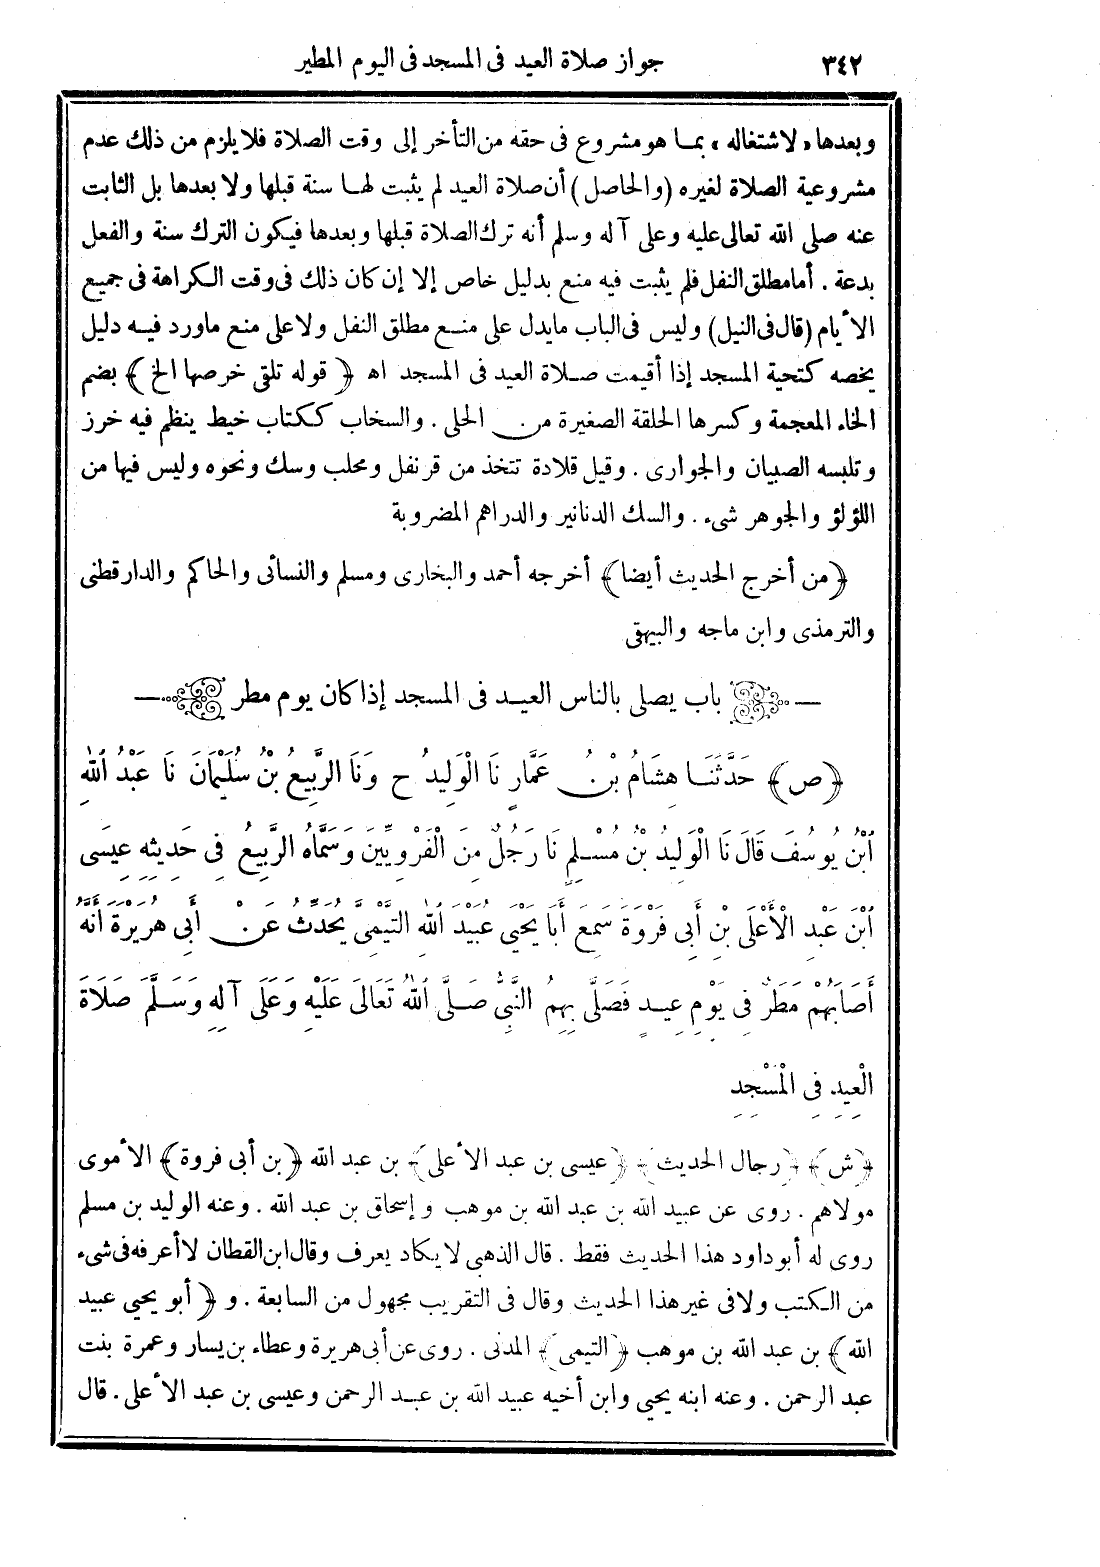 ٣٤٢ جواز صلاة العيد فى المسجد فى اليوم المطير
وبعدها «لاشتغاله» بما هو مشروع فى حقه من التأخر إلى وقت الصلاة فلا يلزم من ذلك عدم
مشروعية الصلاة لغيره (والحاصل) أن صلاة العيد لم يثبت لها سنة قبلها ولا بعدها بل الثابت
عنه صلى الله تعالى عليه وعلى آله وسلم أنه ترك الصلاة قبلها وبعدها فيكون الترك سنة والفعل
بدعة . أما مطلق النفل فلم يثبت فيه منع بدليل خاص إلا إن كان ذلك فى وقت الكراهة فى جميع
الأيام (قال فى النيل) وليس فى الباب مايدل على منع مطلق النفل ولا على منع ماورد فيه دليل
يخصه كتحية المسجد إذا أقيمت صلاة العيد فى المسجد اه ﴿قوله تلقى خرصها الخ﴾ بضم
الخاء المعجمة وكسرها الحلقة الصغيرة من الحلى . والسخاب ككتاب خيط ينظم فيه خرز
وتلبسه الصبيان والجوارى . وقيل قلادة تتخذ من قرنفل ومحلب وسك ونحوه وليس فيها من
اللؤلؤ والجوهر شىء . والسك الدنانير والدراهم المضروبة
﴿من أخرج الحديث أيضا﴾ أخرجه أحمد والبخارى ومسلم والنسائى والحاكم والدارقطنى
والترمذى وابن ماجه والبيهقى
باب يصلى بالناس العيد فى المسجد إذا كان يوم مطر
﴿ص﴾ حَدَّثَنَا هِشَامُ بْنُ عَمَّارٍ نَا الْوَلِيدُ ح وَنَا الرَّبِيعُ بْنُ سُلَيْمَانَ نَا عَبْدُ اللهِ
ابْنُ يُوسُفَ قَالَ نَا الْوَلِيدُ بْنُ مُسْلِمٍ نَا رَجُلٌ مِنَ الْفَرْوِيِّينَ وَسَمَّاهُ الرَّبِيعُ فِى حَدِيثِهِ عِيسَى
ابْنَ عَبْدِ الْأَعْلَى بْنِ أَبِى فَرْوَةَ سَمِعَ أَبَا يَحْيَى عُبَيْدَ اللهِ التَّيْمِىَّ يُحَدِّثُ عَنْ أَبِى هُرَيْرَةَ أَنَّهُ
أَصَابَهُمْ مَطَرٌ فِى يَوْمِ عِيدٍ فَصَلَّى بِهِمُ النَّبِىُّ صَلَّى اللهُ تَعَالَى عَلَيْهِ وَعَلَى آلِهِ وَسَلَّمَ صَلَاةَ
الْعِيدِ فِى الْمَسْجِدِ
﴿ش﴾ ﴿رجال الحديث﴾ ﴿عيسى بن عبد الأعلى﴾ بن عبد الله ﴿بن أبى فروة﴾ الأموى
مولاهم . روى عن عبيد الله بن عبد الله بن موهب وإسحاق بن عبد الله . وعنه الوليد بن مسلم
روى له أبو داود هذا الحديث فقط . قال الذهبى لا يكاد يعرف وقال ابن القطان لا أعرفه فى شىء
من الكتب ولا فى غير هذا الحديث وقال فى التقريب مجهول من السابعة . و ﴿أبو يحيى عبيد
الله﴾ بن عبد الله بن موهب ﴿التيمى﴾ المدنى . روى عن أبى هريرة وعطاء بن يسار وعمرة بنت
عبد الرحمن . وعنه ابنه يحيى وابن أخيه عبيد الله بن عبد الرحمن وعيسى بن عبد الأعلى . قال